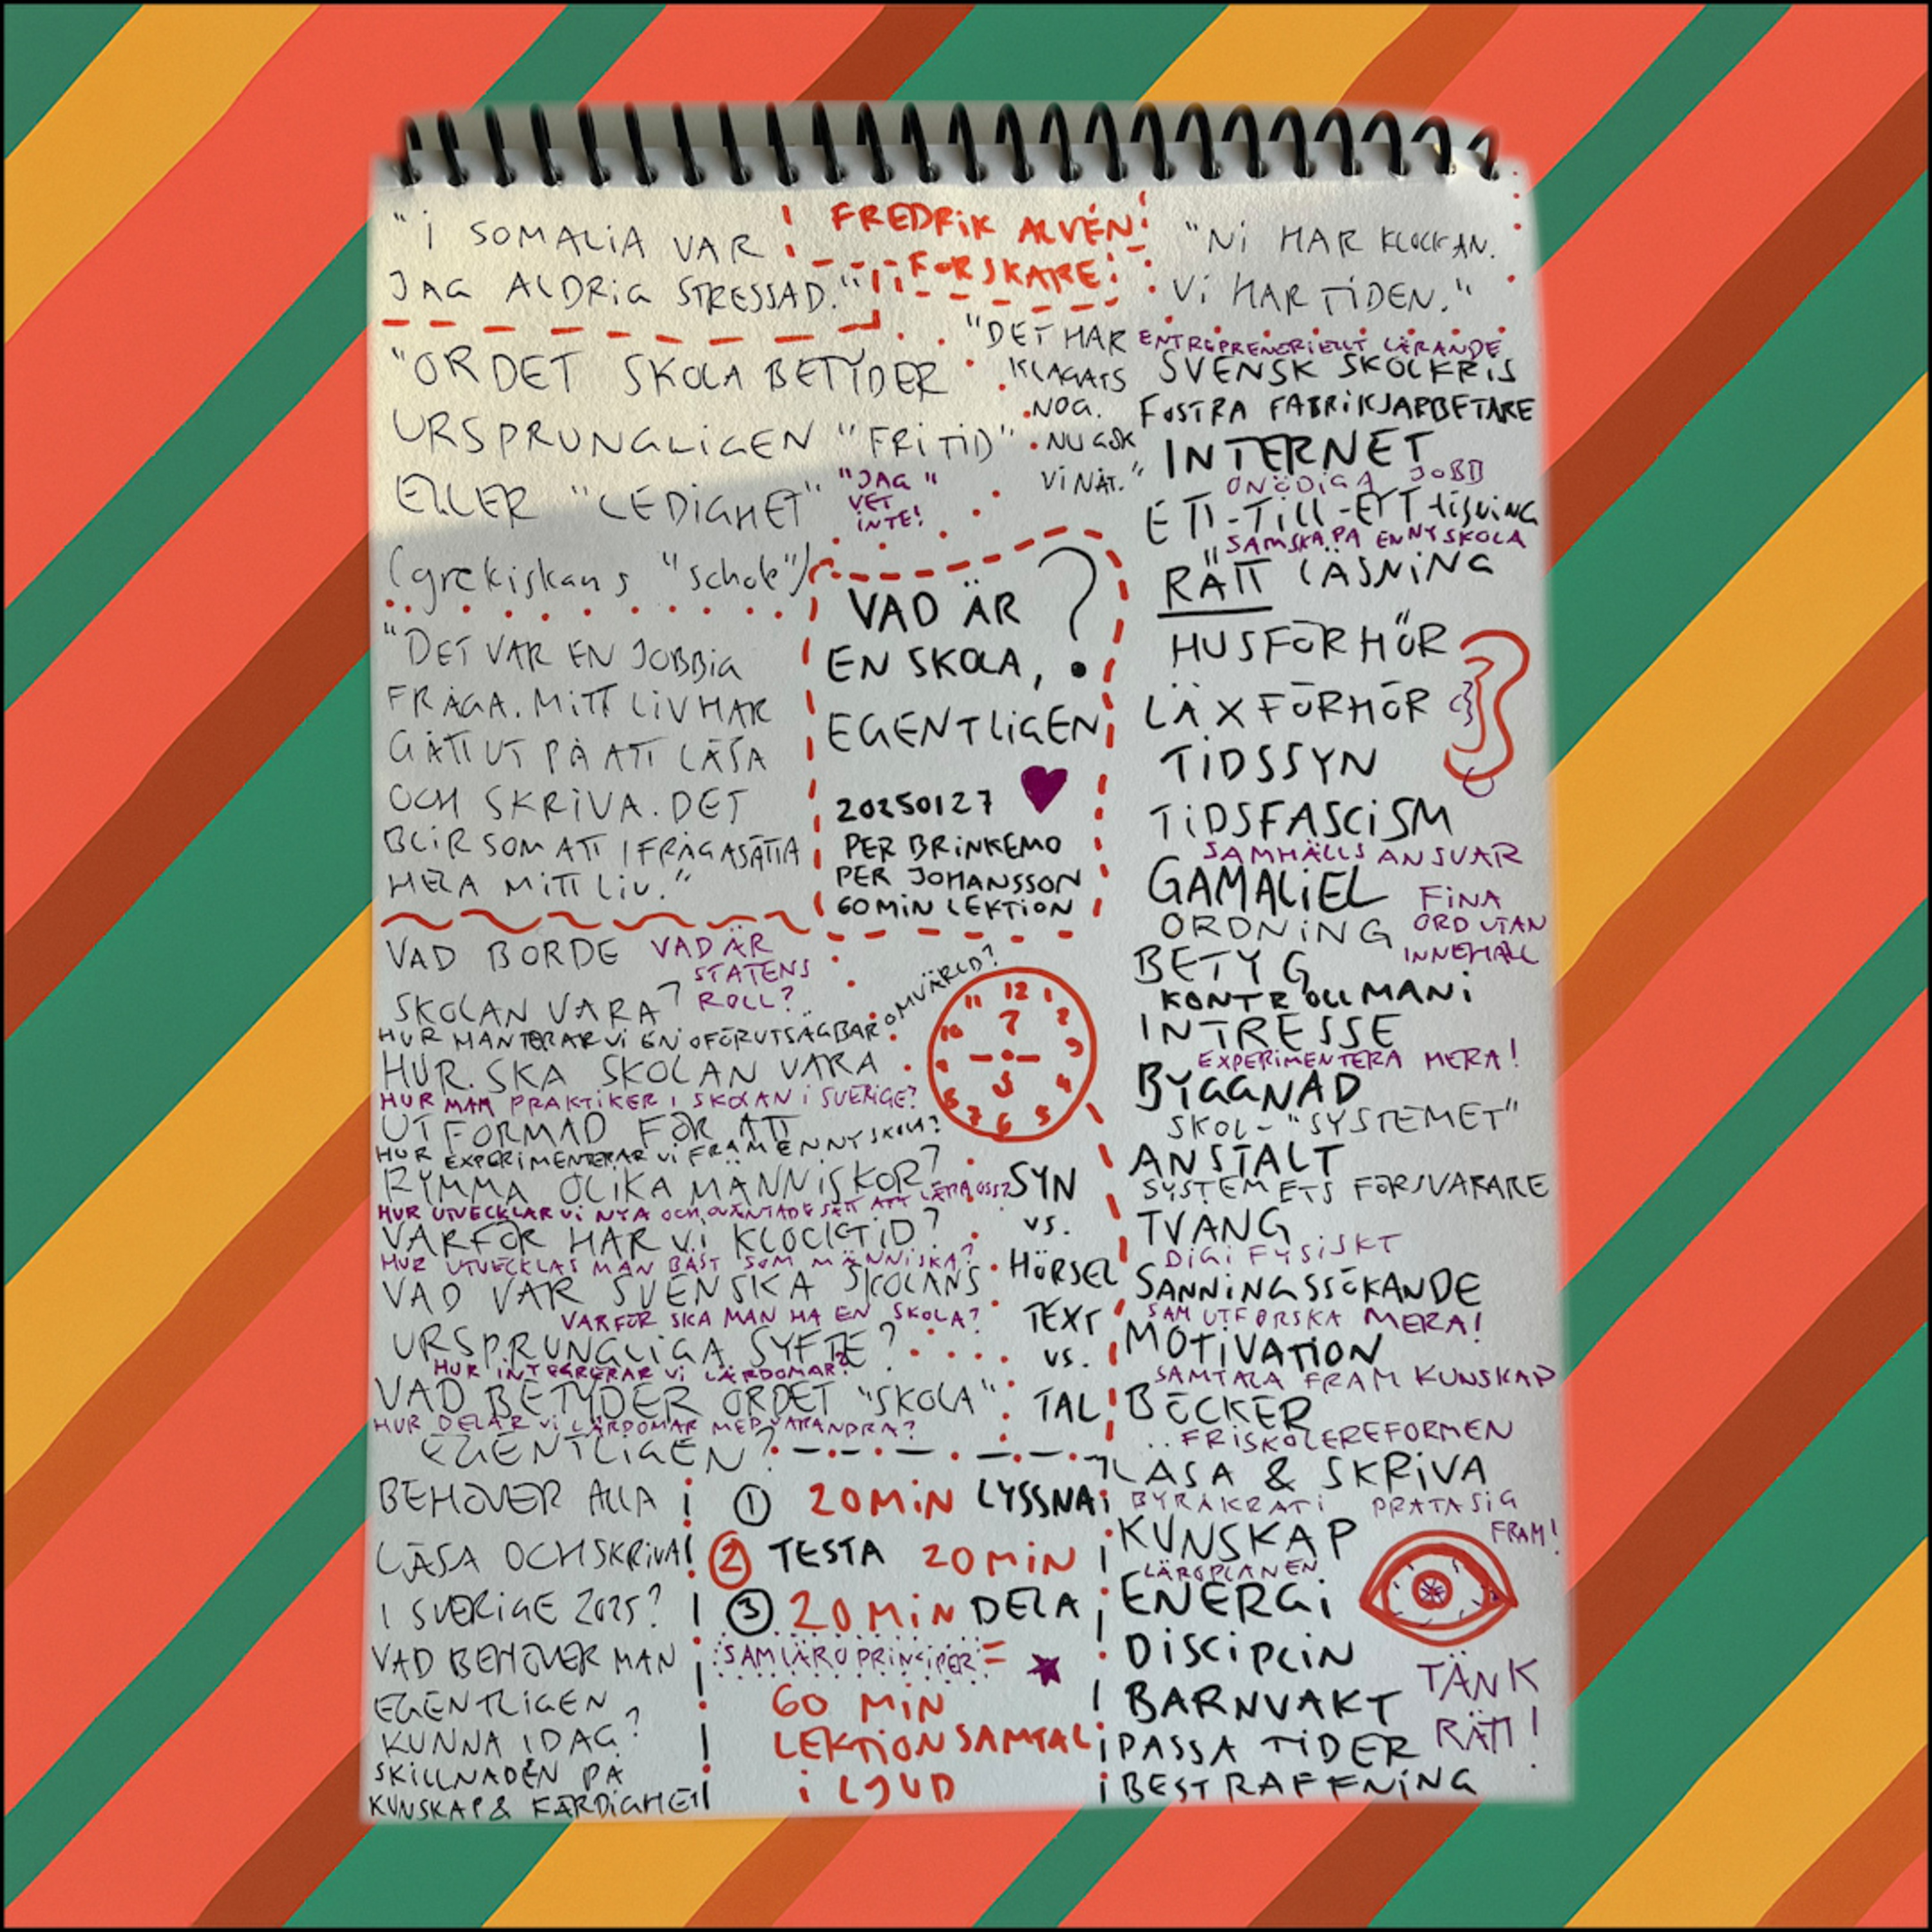 "I SOMALIA VAR
JAG ALDRIG STRESSAD."
FREDRIK ALVÉN
FORSKARE
"NI HAR KLOCKAN.
VI HAR TIDEN."
"ORDET SKOLA BETYDER
URSPRUNGLIGEN "FRITID"
ELLER "LEDIGHET"
(grekiskans "schole")
"JAG
VET
INTE!"
"DET HAR
KLAGATS
NOG.
NU GÖR
VI NÅT."
"DET VAR EN JOBBIG
FRÅGA. MITT LIV HAR
GÅTT UT PÅ ATT LÄSA
OCH SKRIVA. DET
BLIR SOM ATT IFRÅGASÄTTA
HELA MITT LIV."
VAD ÄR
EN SKOLA, ?
EGENTLIGEN
20250127
PER BRINKEMO
PER JOHANSSON
60 MIN LEKTION
VAD BORDE
SKOLAN VARA?
VAD ÄR
STATENS
ROLL?
HUR HANTERAR VI EN OFÖRUTSÄGBAR OMVÄRLD?
HUR SKA SKOLAN VARA
HUR MAN PRAKTIKER I SKOLAN I SVERIGE?
UTFORMAD FÖR ATT
HUR EXPERIMENTERAR VI FRAM EN NY SKOLA?
RYMMA OLIKA MÄNNISKOR?
HUR UTVECKLAR VI NYA OCH OVÄNTADE SÄTT ATT LÄRA OSS?
VARFÖR HAR VI KLOCKTID?
HUR UTVECKLAS MAN BÄST SOM MÄNNISKA?
VAD VAR SVENSKA SKOLANS
VARFÖR SKA MAN HA EN SKOLA?
URSPRUNGLIGA SYFTE?
HUR INTEGRERAR VI LÄRDOMAR?
VAD BETYDER ORDET "SKOLA"
HUR DELAR VI LÄRDOMAR MED VARANDRA?
EGENTLIGEN?
BEHÖVER ALLA
LÄSA OCH SKRIVA
I SVERIGE 2025?
VAD BEHÖVER MAN
EGENTLIGEN
KUNNA IDAG?
SKILLNADEN PÅ
KUNSKAP & FÄRDIGHET
12 1 2 3 4 5 6 7 8 9 10 11
SYN
vs.
HÖRSEL
TEXT
vs.
TAL
1 20 MIN LYSSNA
2 TESTA 20 MIN
3 20 MIN DELA
SAMLÄROPRINCIPER =
60 MIN
LEKTIONSAMTAL
I LJUD
ENTREPRENÖRIELLT LÄRANDE
SVENSK SKOLKRIS
FOSTRA FABRIKSARBETARE
INTERNET
ONÖDIGA JOBB
ETT-TILL-ETT-LÖSNING
SAMSKAPA EN NY SKOLA
"RÄTT LÄSNING
HUSFÖRHÖR
LÄXFÖRHÖR
TIDSSYN
TIDSFASCISM
SAMHÄLLSANSVAR
GAMALIEL
FINA
ORD UTAN
INNEHÅLL
ORDNING
BETYG
KONTROLLMANI
INTRESSE
EXPERIMENTERA MERA!
BYGGNAD
SKOL-"SYSTEMET"
ANSTALT
SYSTEMETS FÖRSVARARE
TVÅNG
DIGIFYSISKT
SANNINGSSÖKANDE
SAMUTFORSKA MERA!
MOTIVATION
SAMTALA FRAM KUNSKAP
BÖCKER
FRISKOLEREFORMEN
LÄSA & SKRIVA
BYRÅKRATI
PRATA SIG
FRAM!
KUNSKAP
LÄROPLANEN
ENERGI
DISCIPLIN
BARNVAKT
TÄNK
RÄTT!
PASSA TIDER
BESTRAFFNING